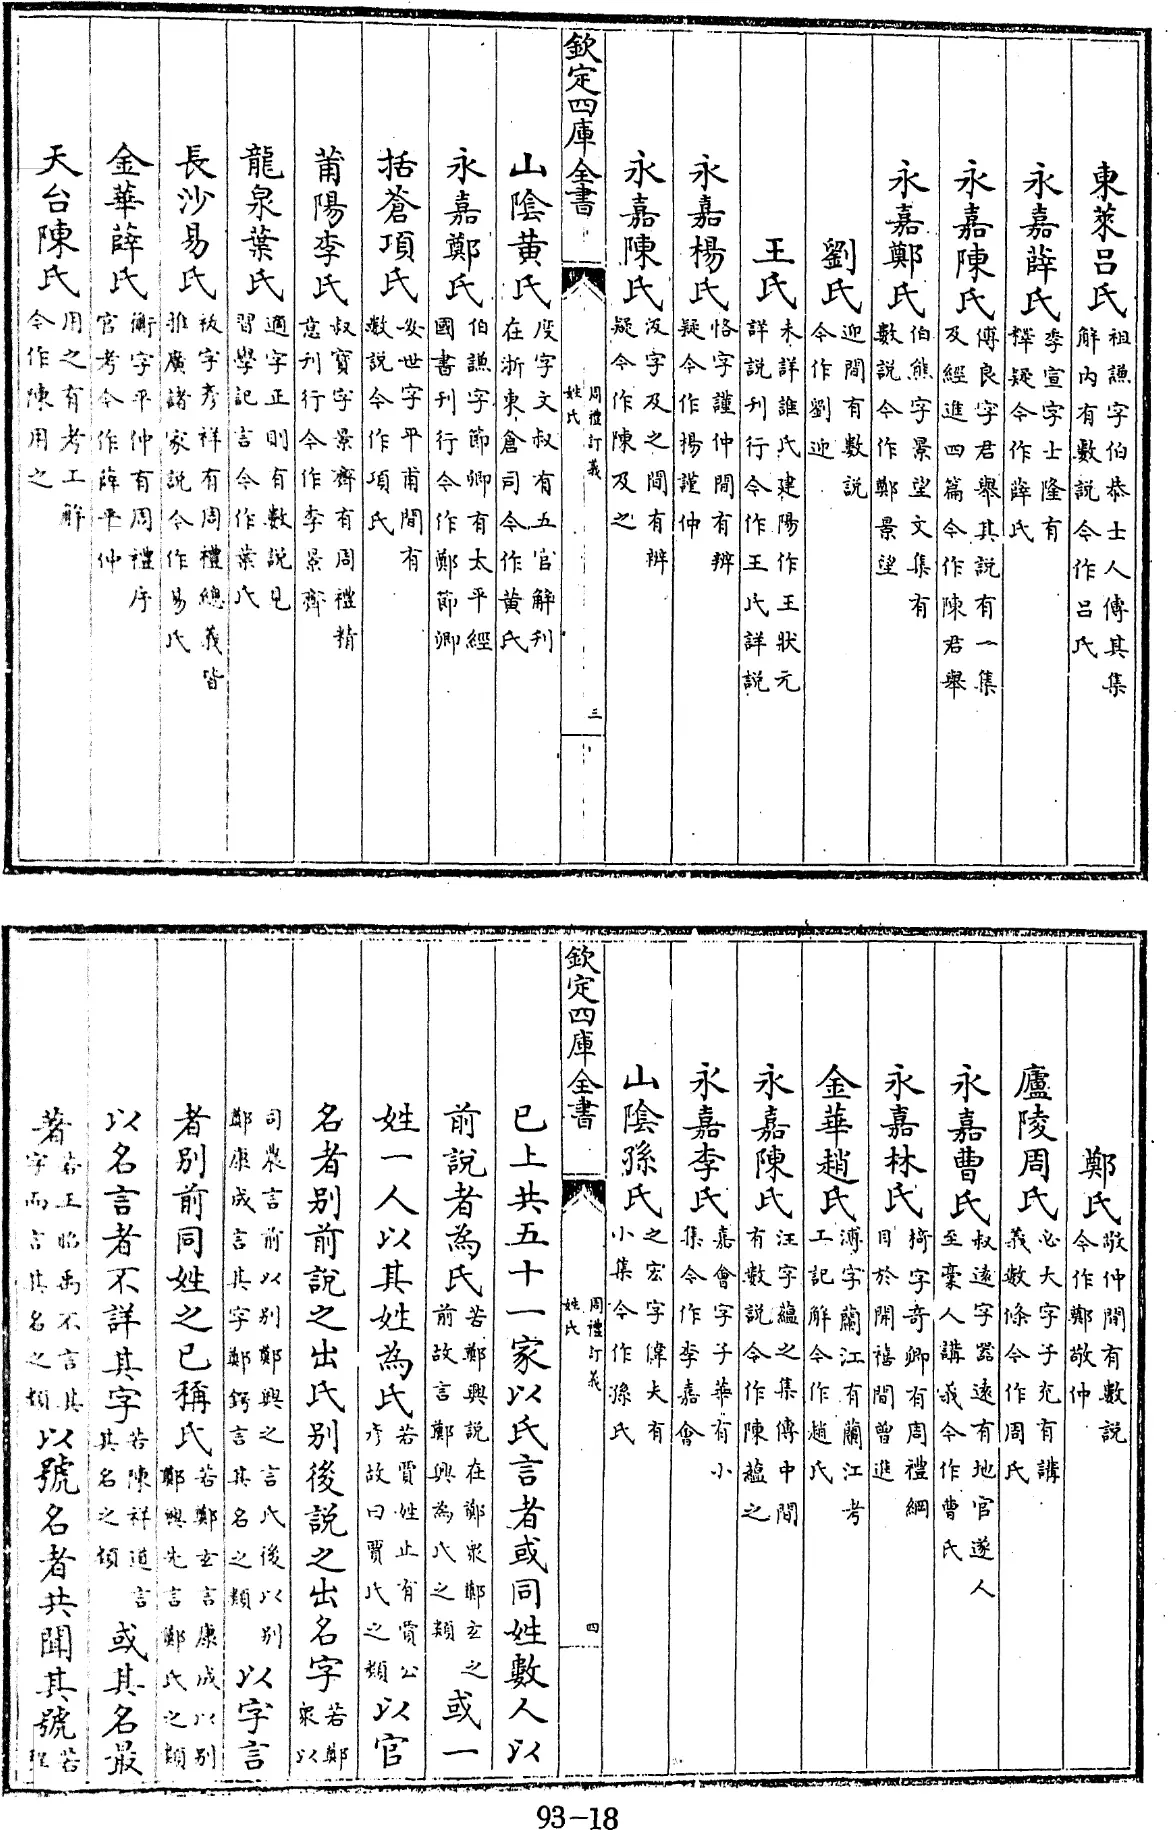 東萊呂氏祖謙字伯恭士人傳其集解内有數說今作呂氏
永嘉薛氏季宣字士隆有釋疑今作薛氏
永嘉陳氏傅良字君舉其説有一集及經進四篇今作陳君舉
永嘉鄭氏伯熊字景望文集有數説今作鄭景望
劉氏迎間有數説今作劉迎
王氏未詳誰氏建陽作王狀元詳説刋行今作王氏詳説
永嘉楊氏恪字謹仲間有辨疑今作楊謹仲
永嘉陳氏汲字及之間有辨疑今作陳及之
欽定四庫全書
周禮訂義
姓氏
三
山陰黄氏度字文叔有五官解刋在浙東倉司今作黄氏
永嘉鄭氏伯謙字節卿有太平經國書刋行今作鄭節卿
括蒼項氏安世字平甫間有數説今作項氏
莆陽李氏叔寶字景齊有周禮精意刋行今作李景齊
龍泉葉氏適字正則有數説見習學記言今作葉氏
長沙易氏祓字彥祥有周禮總義皆推廣諸家説今作易氏
金華薛氏衡字平仲有周禮序官考今作薛平仲
天台陳氏用之有考工解今作陳用之
鄭氏敬仲間有數説今作鄭敬仲
廬陵周氏必大字子充有講義數條今作周氏
永嘉曹氏叔遠字器遠有地官遂人至稾人講義今作曹氏
永嘉林氏椅字奇卿有周禮綱目於開禧間曾進
金華趙氏溥字蘭江有蘭江考工記解今作趙氏
永嘉陳氏汪字藴之集傳中間有數説今作陳藴之
永嘉李氏嘉會字子華有小集今作李嘉會
山陰孫氏之宏字偉夫有小集今作孫氏
欽定四庫全書
周禮訂義
姓氏
四
已上共五十一家以氏言者或同姓數人以
前說者為氏若鄭興説在鄭衆鄭玄之前故言鄭興為氏之類或一
姓一人以其姓為氏若賈姓止有賈公彥故曰賈氏之類以官
名者别前説之出氏别後説之出名字若鄭衆以
司農言前以别鄭興之言氏後以别鄭康成言其字鄭鍔言其名之類以字言
者别前同姓之已稱氏若鄭玄言康成以别鄭興先言鄭氏之類
以名言者不詳其字若陳祥道言其名之類或其名最
著若王昭禹不言其字而言其名之類以號名者共聞其號若
93-18